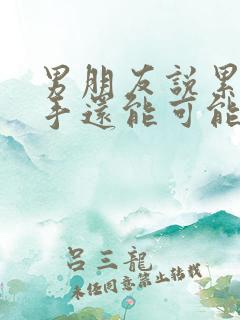 男朋友說累
手還能可能
呂三龍
未任同意禁止轉載